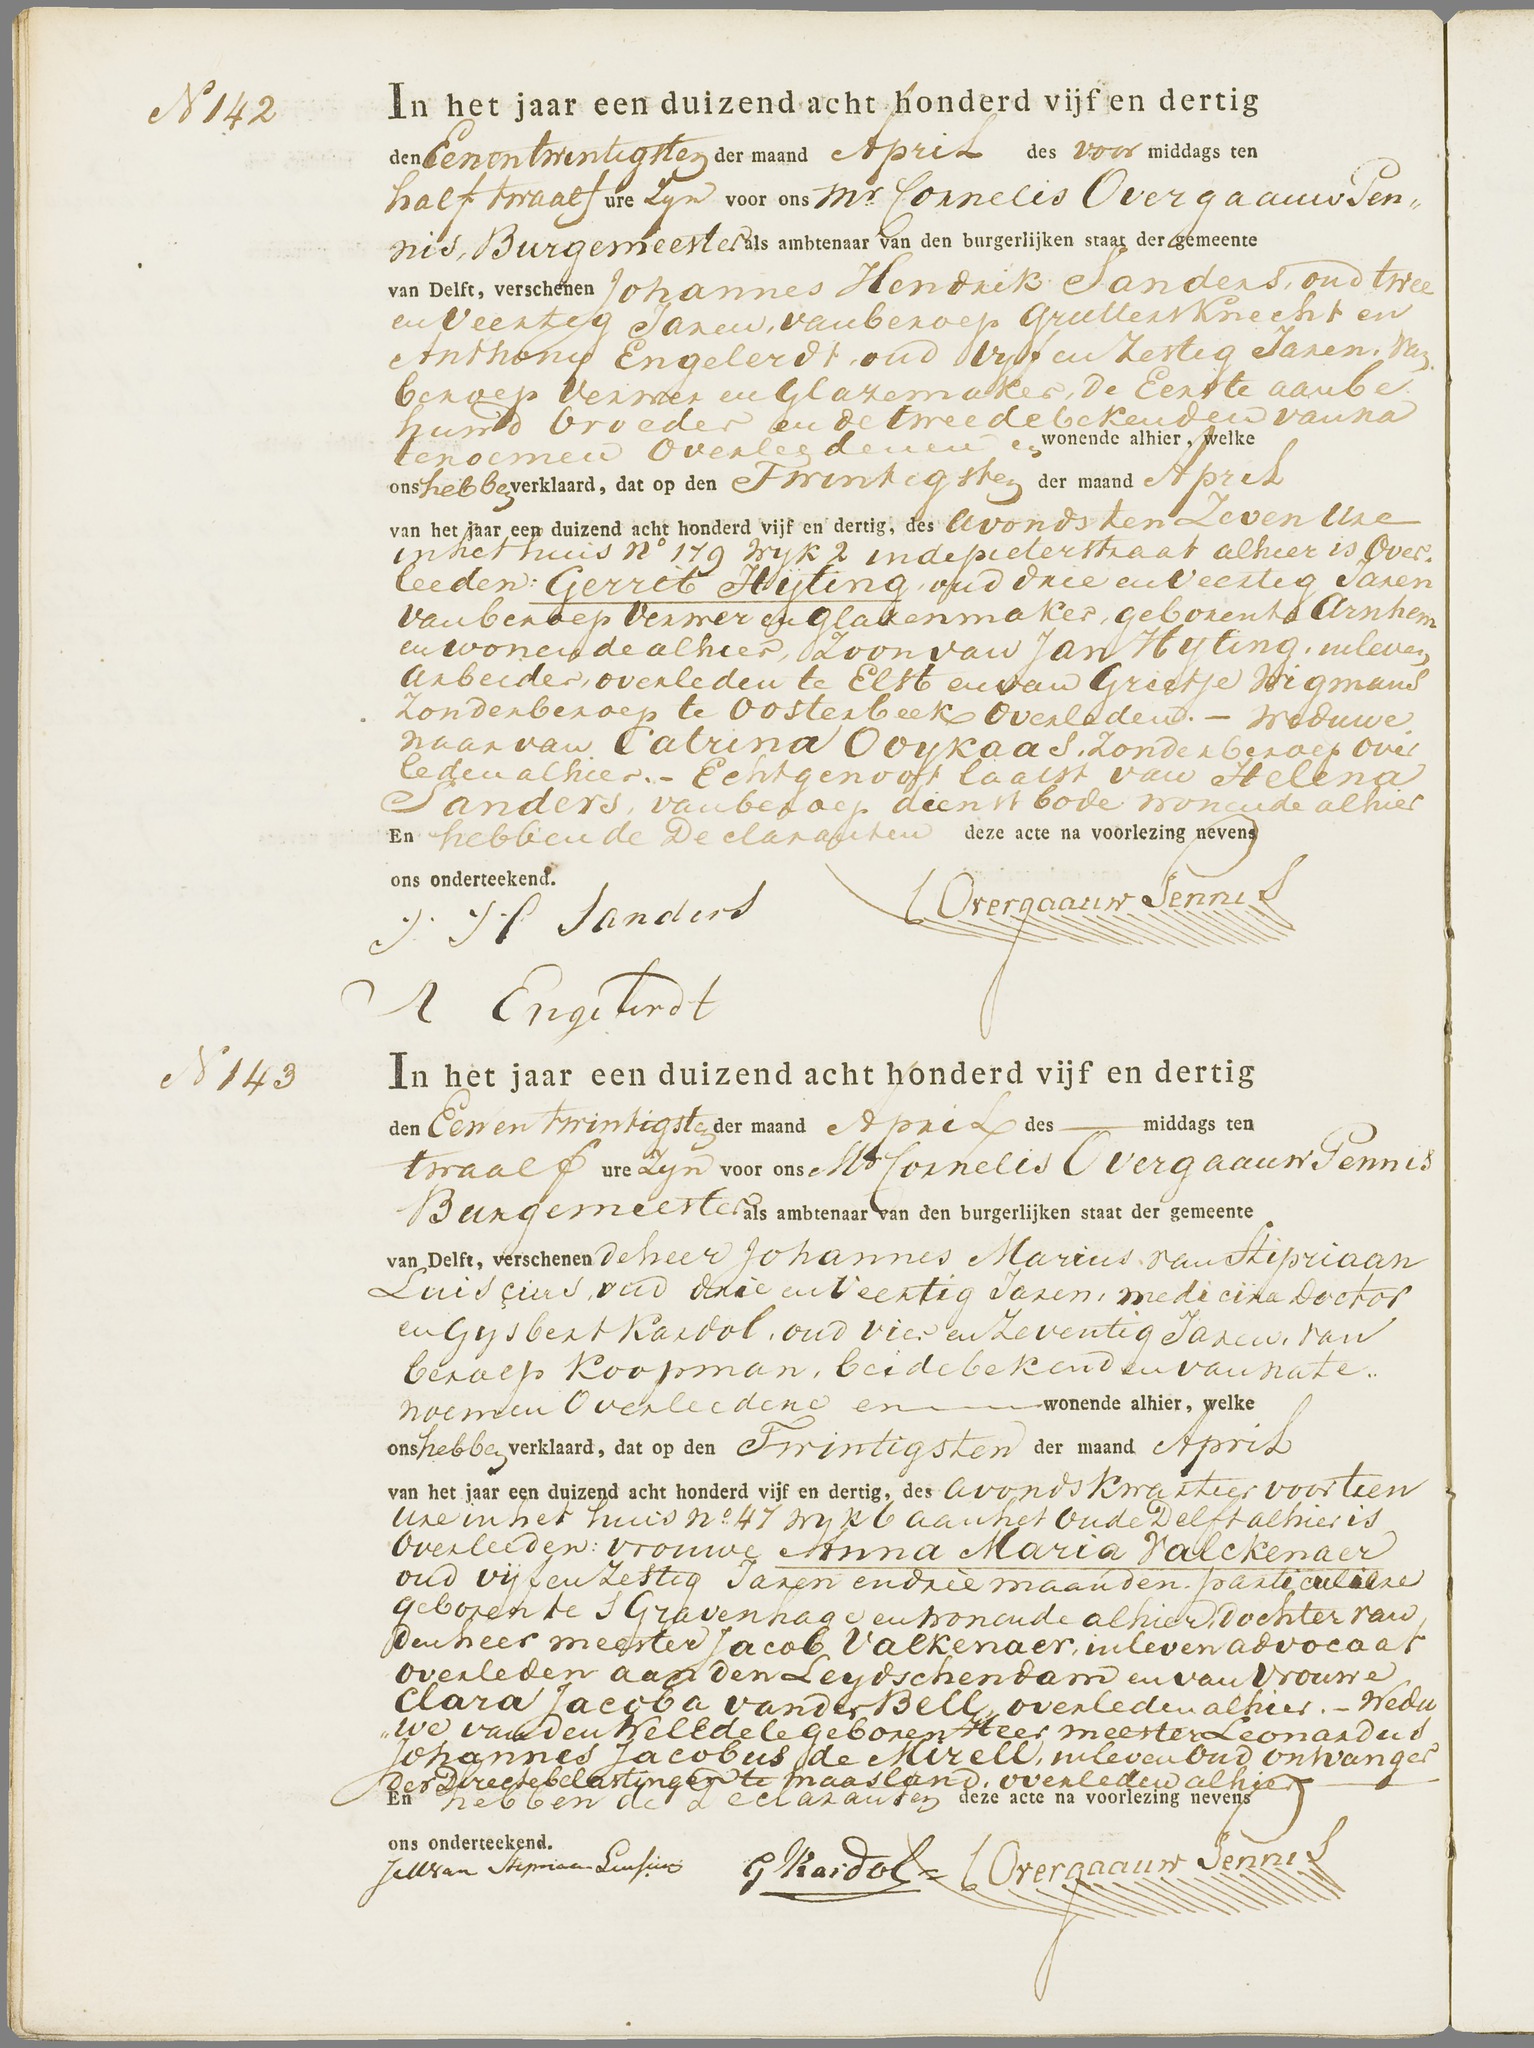 N 142
In het jaar een duizend acht honderd vijf en dertig
den Eenentwintigsten der maand April des voor middags ten
half twaalf ure Zyn voor ons Mr. Cornelis Overgaauw Pen„
nis, Burgemeester als ambtenaar van den burgerlijken staat der gemeente
van Delft, verschenen Johannes Hendrik Sanders, oud twee
en Veertig Jaren, van beroep Grutters Knecht en
Anthony Engelerdt, oud vyf en Zestig Jaren, van
beroep Verwer en Glazemaker, De Eerste aanbe
huwd broeder en de tweede bekenden van na
tenoemen Overleedenen en wonende alhier, welke
ons hebben verklaard, dat op den Twintigsten der maand April
van het jaar een duizend acht honderd vijf en dertig, des avonds ten Zeven Ure
in het huis No 179 Wyk 2 in de pieterstraat alhier is Over„
leeden: Gerrit Hyting, oud drie en Veertig Jaren
van beroep Verwer en glazenmaker, geboren te Arnhem
en wonende alhier, Zoon van Jan Hyting, in leven
Arbeider, overleden te Elst en van Greetje Wigmans
Zonder beroep te Oosterbeek Overleden. – Weduwe
naar van Catrina Ooykaas, Zonder beroep over
leden alhier. – Echtgenoot laatst van Helena
Sanders, van beroep dienstbode wonende alhier
En hebben de Declaranten deze acte na voorlezing nevens
ons onderteekend.
J. H Sanders
C Overgaauw Pennis
A Engelerdt
N 143
In het jaar een duizend acht honderd vijf en dertig
den Eenen twintigsten der maand April des — middags ten
twaalf ure Zyn voor ons Mr Cornelis Overgaauw Pennis
Burgemeester als ambtenaar van den burgerlijken staat der gemeente
van Delft, verschenen de heer Johannes Marius van Stipriaan
Luisçius, oud drie en Veertig Jaren, medicina Doctor
en Gysbert Kardol, oud vier en Zeventig Jaren, van
beroep Koopman, beide bekenden van na te„
noemen Overleedene en — wonende alhier, welke
ons hebben verklaard, dat op den Twintigsten der maand April
van het jaar een duizend acht honderd vijf en dertig, des avonds Kwartier voor tien
Ure in het huis No. 47 Wyk 6 aan het Oude Delft alhier is
Overleeden: vrouwe Anna Maria Valckenaer
oud vijf en Zestig Jaren en drie maanden, particuliere
geboren te S Gravenhage en wonende alhier, dochter van
Den heer meester Jacob Valkenaer, in leven advocaat
overleden aan den Leydschendam en van Vrouwe
Clara Jacoba van der Bell, overleden alhier. – Wedu
„we van den Weledele geboren Heer meester Leonardus
Johannes Jacobus de Mirell, in leven Oud ontvanger
der Directe belastingen te maasland, overleden alhier —
En hebben de Declaranten deze acte na voorlezing nevens
ons onderteekend.
JMvan Stipriaan Luiscius
G Kardol
C Overgaauw Pennis